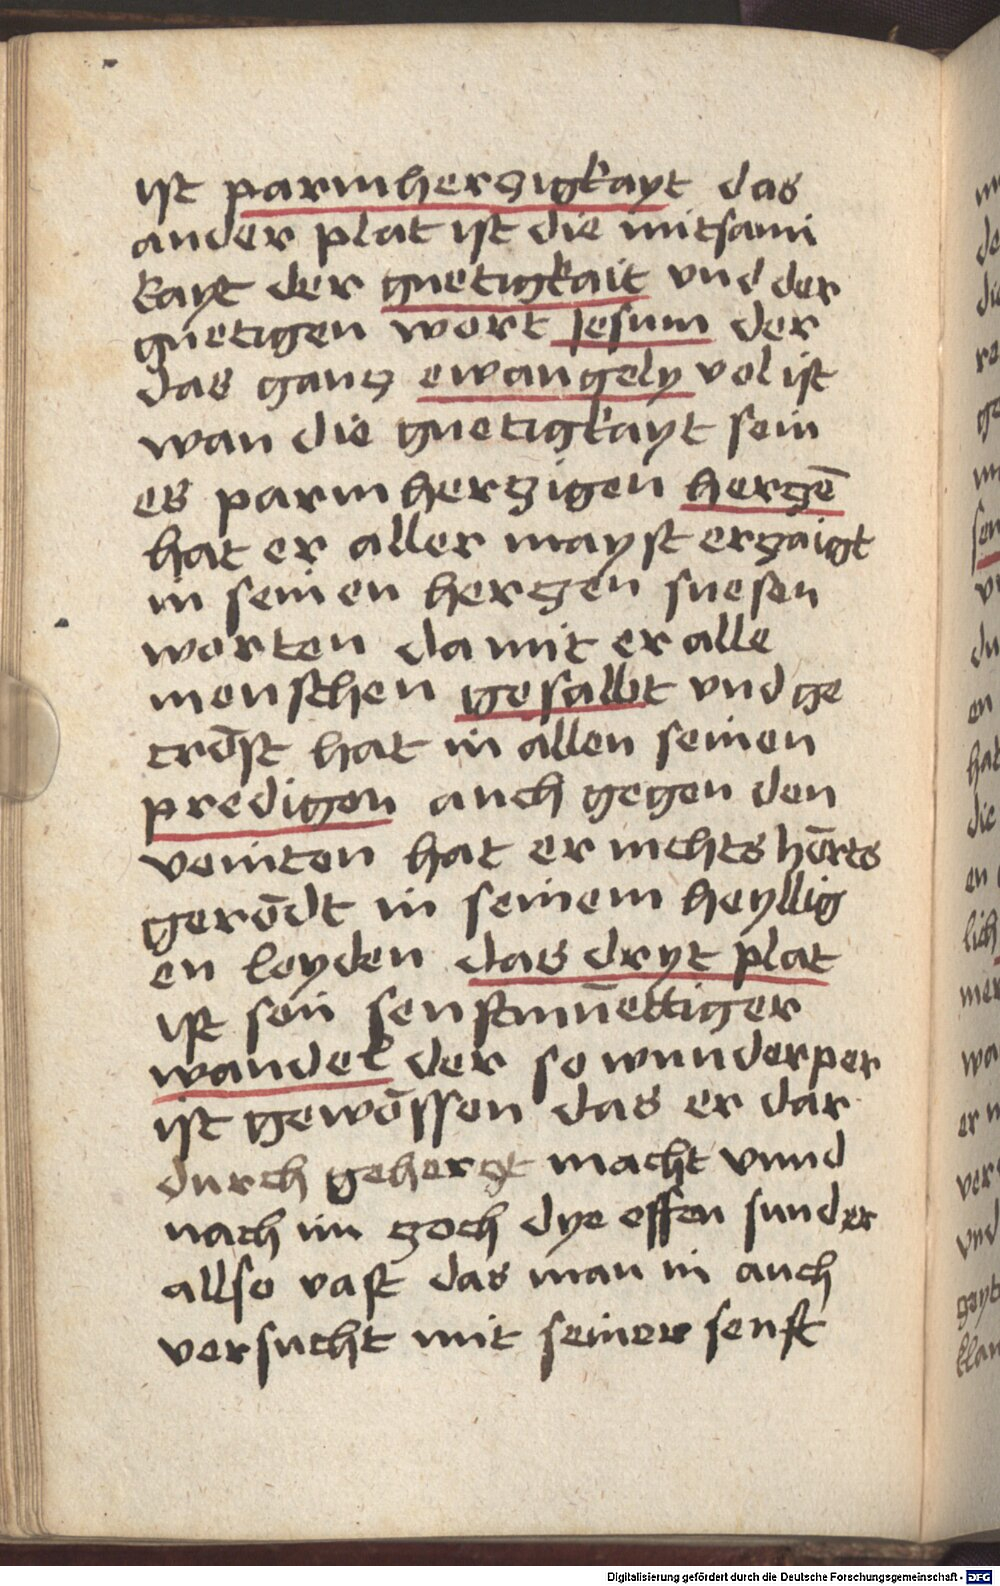 ist parmherczigkayt das
ander plat ist die mitsami
kayt der guetigkait vnd der
guetigen wort Jesum der
das gancz ewangely vol ist
wan die guetigkayt sein
es parmherczigen herczē
hat er aller mayst erczaigt
in seinen herczen suesen
worten da mit er alle
menschen gesalbt vnd ge
trōst hat in allen seinen
predigen auch gegen den
veinten hat er nichts hōrts
gerōdt in seinem heyllig
en leyden das dryt plat
ist sein senftmūettiger
wandel der so wunderper
ist gewōssen das er dar
durch geherczt macht vnnd
nach im zoch dye offen sunder
allso vast das man in auch
versucht mit seiner senft
Digitalisierung gefördert durch die Deutsche Forschungsgemeinschaft - DFG